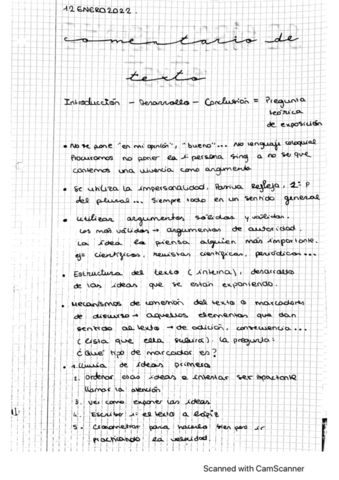 12 ENERO 2022.
comentario de
texto
Introducción - Desarrollo - Conclusión = Pregunta
teórica
de exposición
• No se pone "en mi opinión", "bueno"... No lenguaje coloquial
Procuramos no poner la 1ª persona sing a no se que
contemos una vivencia como argumento.
• Se utiliza la impersonalidad, Pasiva Refleja, 2ª p
del plural... Siempre todo en un sentido general
• Utilizar argumentos sólidos y válidos.
Los más válidos → argumentos de autoridad.
La idea la piensa alguien más importante.
ej científicos, revistas científicas, periódicos...
• Estructura del texto (interna), desarrollo
de las ideas que se están exponiendo.
• Mecanismos de conexión del texto o marcadores
de discurso → aquellos elementos que dan
sentido al texto → de adición, consecuencia...
(lista que ella subirá). la pregunta:
¿Qué tipo de marcador es?
• 1. lluvia de ideas primera
2. ordenar esas ideas e intentar ser impactante
llamar la atención
3. Ver como exponer las ideas
4. Escribir el texto a lápiz
5. Cronometrar para hacerlo bien pero ir
practicando la velocidad.
Scanned with CamScanner